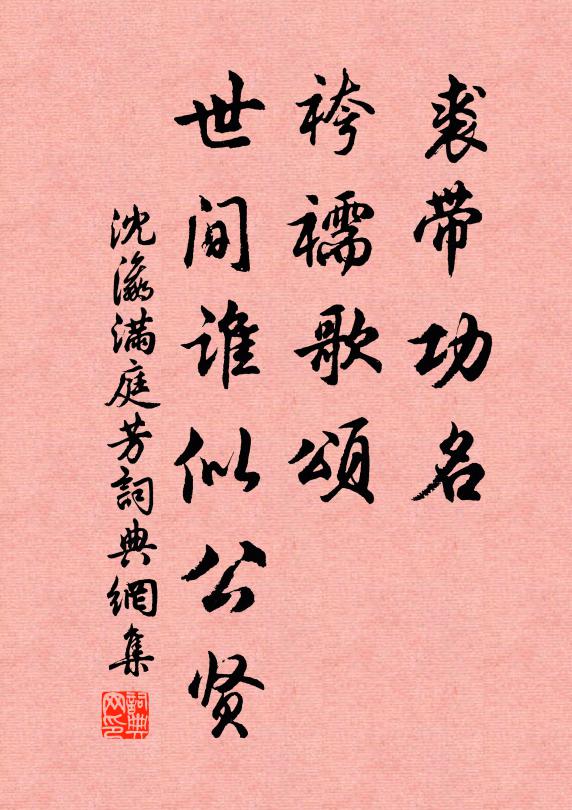 裘带功名
袴襦歌頌
世间谁似公贤
沈瀛满庭芳詞典網集
詞典网印